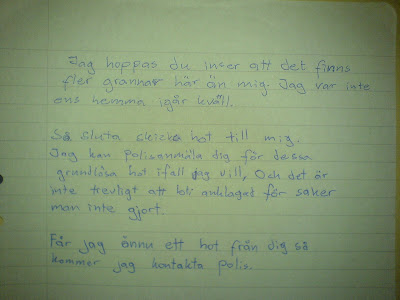 Jag hoppas du inser att det finns
fler grannar här än mig. Jag var inte
ens hemma igår kväll.
Så sluta skicka hot till mig.
Jag kan polisanmäla dig för dessa
grundlösa hot ifall jag vill, Och det är
inte trevligt att bli anklagad för saker
man inte gjort.
Får jag ännu ett hot från dig så
kommer jag kontakta polis.